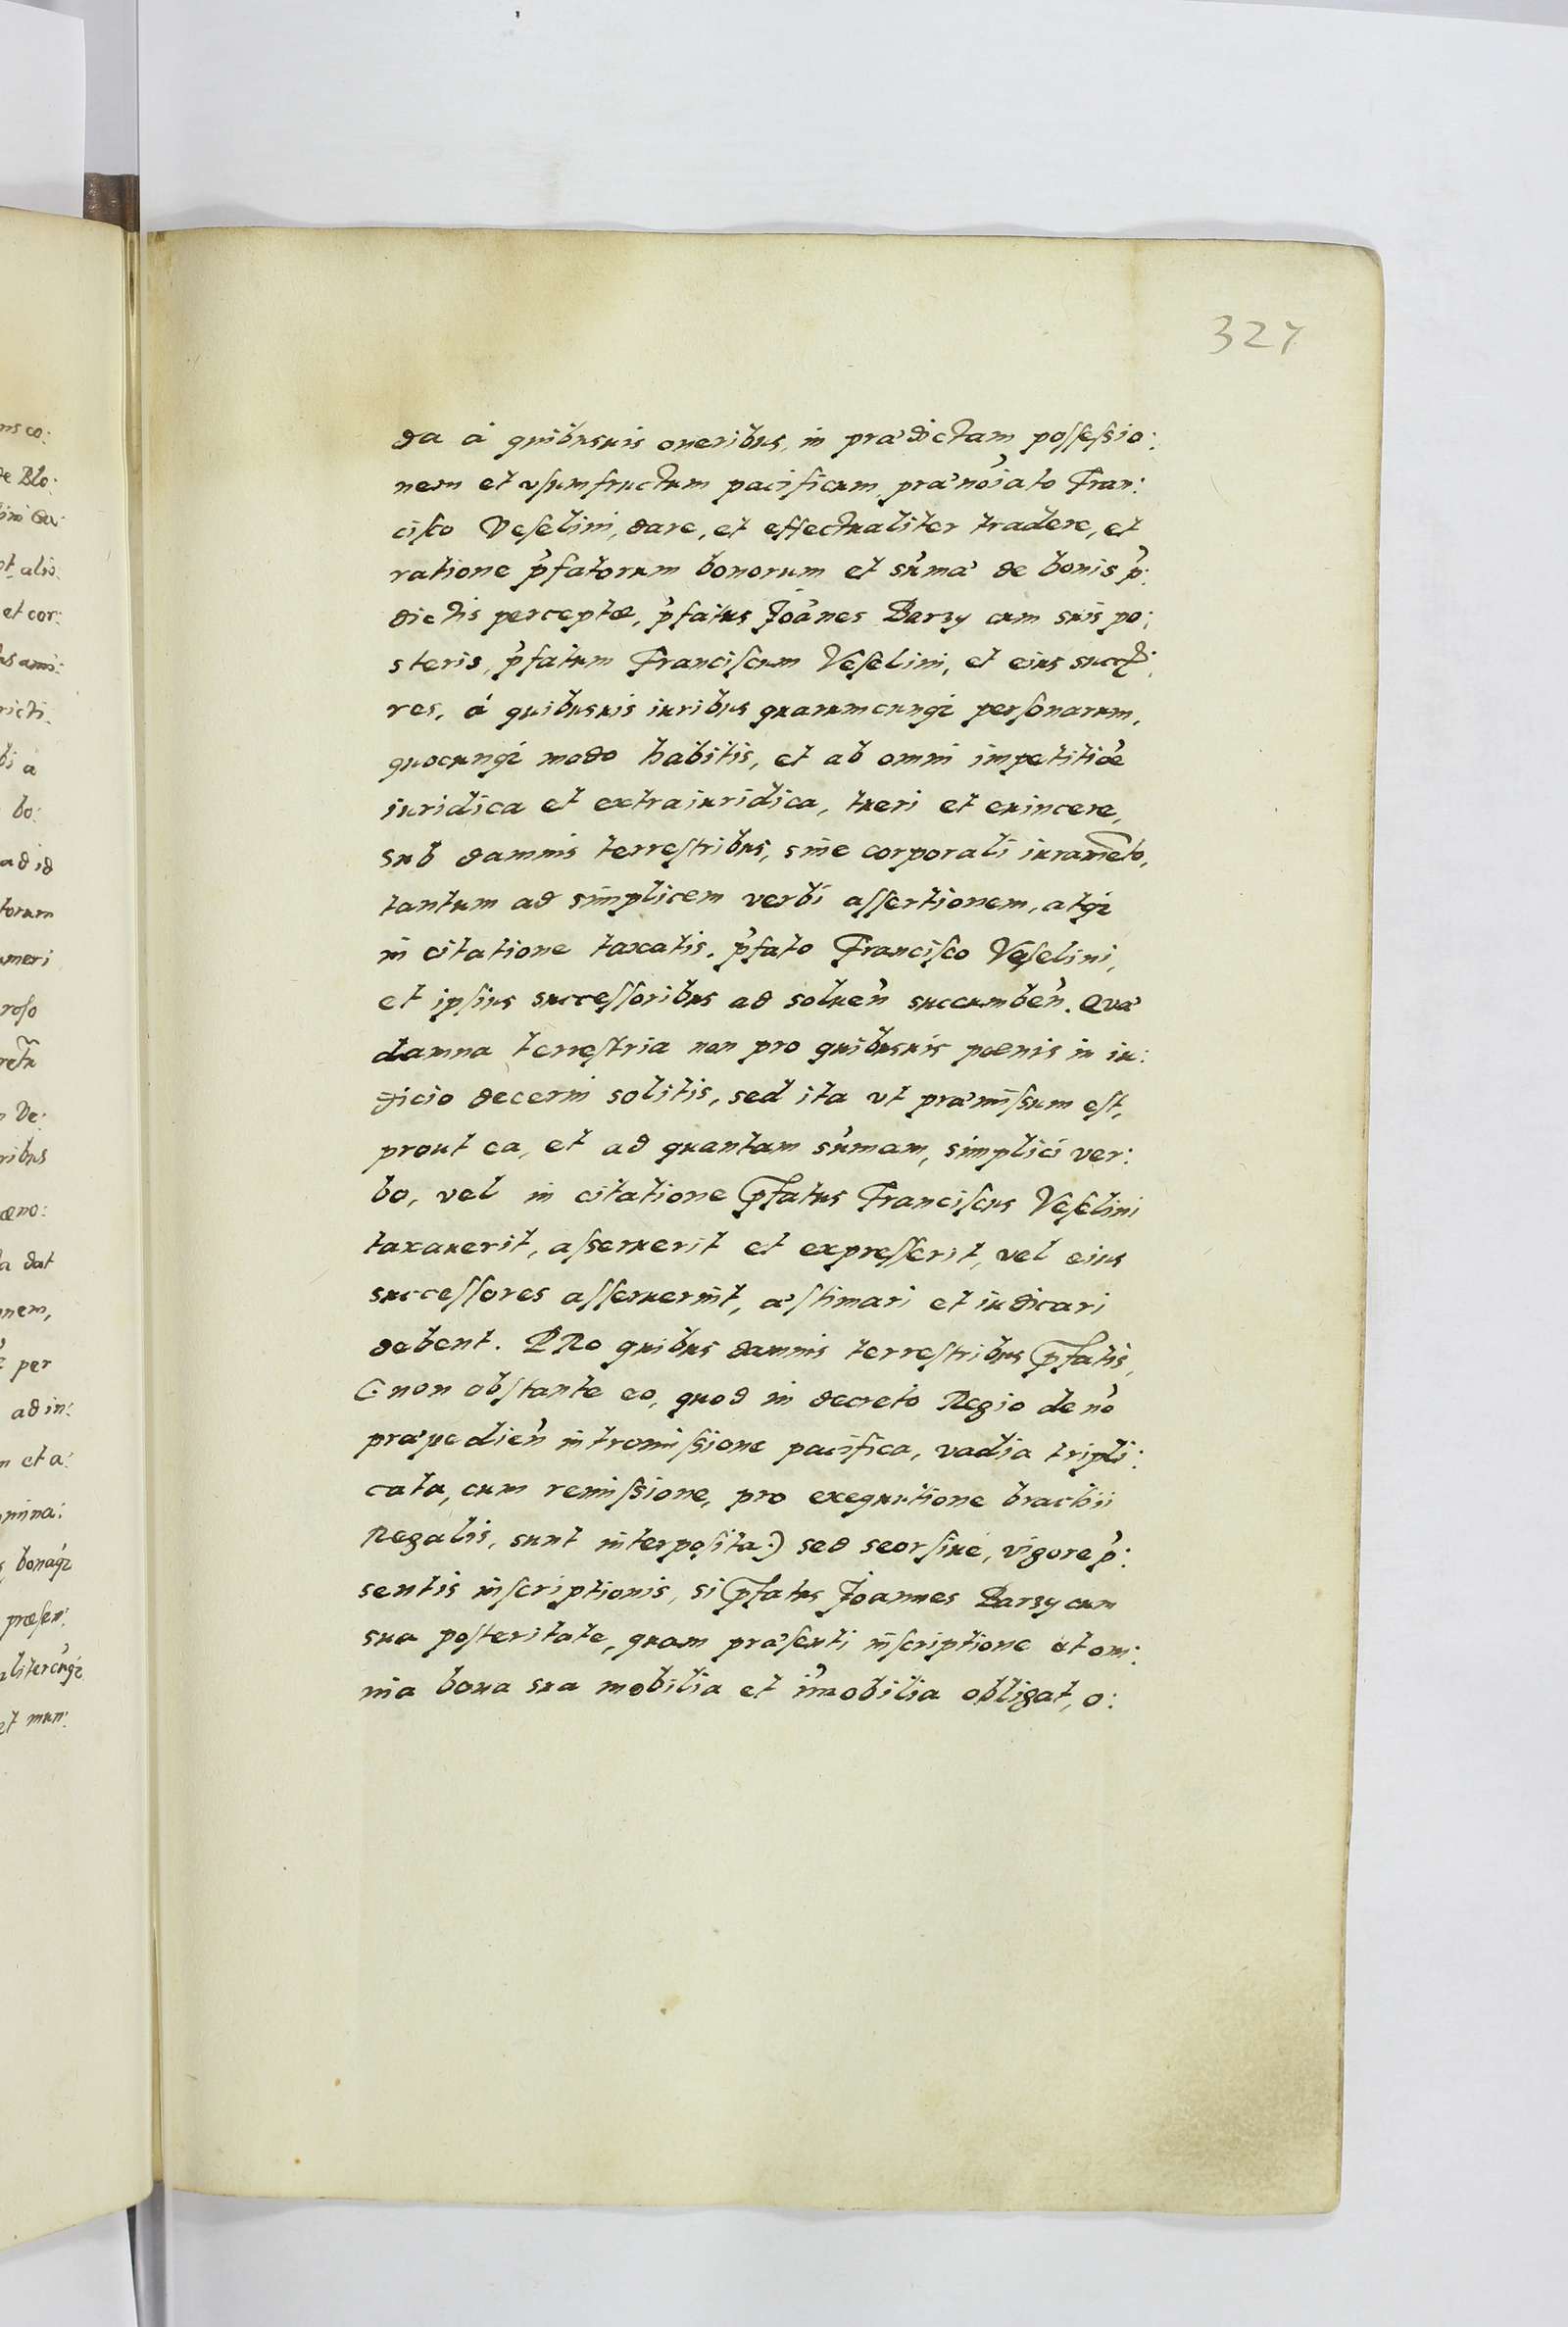 327
da á quibusuis oneribus, in prædictam possessio:
nem et vsumfructum pacificum, præno'iato Fran:
cisco Veselini, dare, et effectualiter tradere, et
ratione p'fatorum bonorum et su'mæ de bonis p':
dictis perceptæ, p'fatus Joa'nes Barzy cum suis po:
steris, p'fatum Franciscum Veselini, et eius
res, á quibusuis iuribus quarumcunqꝫ personarum,
quocunqꝫ modo habitis, et ab omni impetitio'e
iuridica et extraiuridica, tueri et euincere,
sub damnis terrestribus, sine corporali iuramēto,
tantum ad simplicem verbi assertionem, atqꝫ
in citatione taxatis, p'fato Francisco Veselini,
et ipsius successoribus ad soluen' succumben'. Quæ
damna terrestria non pro quibusuis pœnis in iu:
dicio decerni solitis, sed ita vt præmissum est,
prout ea, et ad quantam su'mam, simplici ver:
bo, vel in citatione p̄fatus Franciscus Veselini
taxauerit, asseruerit et expresserit, vel eius
successores asseruerint, æstimari et iudicari
debent. PRo quibus damnis terrestribus p̄fatis,
(: non obstante eo, quod in decreto Regio de no'
præpedien' intromissione pacifica, vadia tripli:
cata, cum remissione, pro exequutione brachii
Regalis, sunt interposita :) sed seorsiue, vigore p':
sentis inscriptionis, si p̄fatus Joannes Barzy cum
sua posteritate, quam præsenti inscriptione et om:
nia bona sua mobilia et i'mobilia obligat, o:
ns co:
de Blo:
alis:
et cor:
ricti.
bi á
bo:
ad id
torum
umeri
roso
De:
ribus
æno:
a dat
nem,
per
ad in:
et a:
mina:
bonaqꝫ
præsen:
et mun: